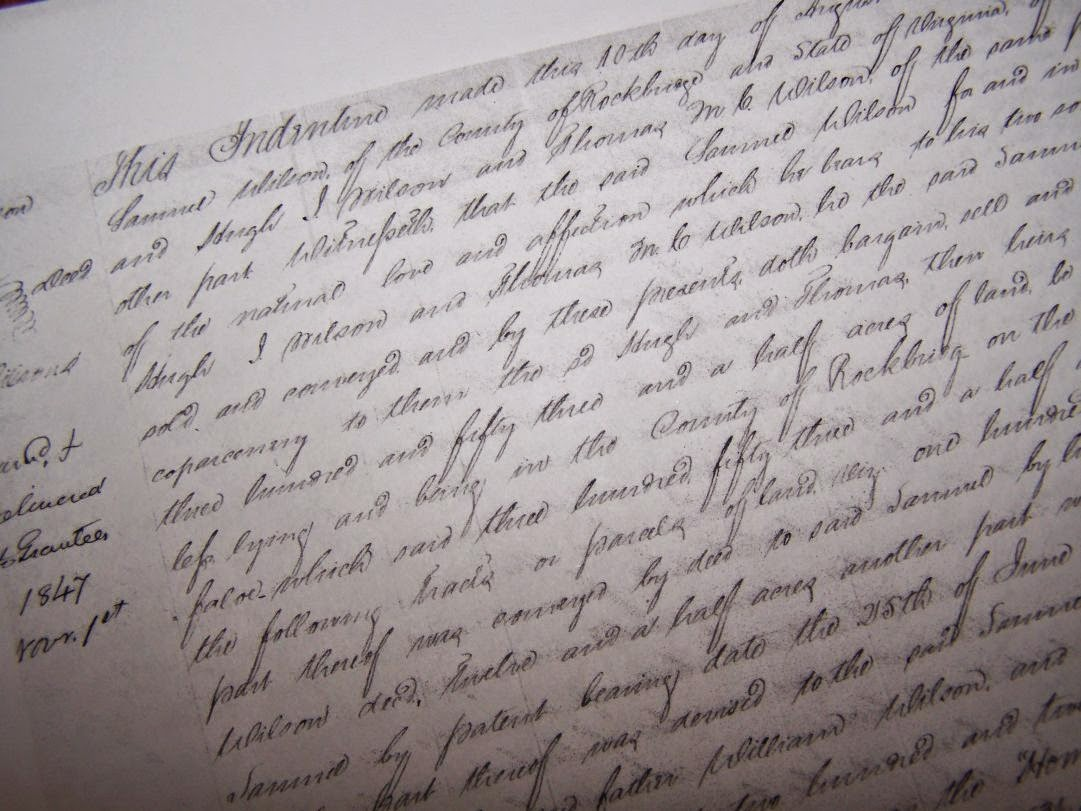 This Indenture made this 10th day of
Samuel Wilson, of the County of Rockbridge and State of Virginia,
and Hugh J Wilson and Thomas M C Wilson, of the same
other part Witnesseth, that the said Samuel Wilson for and in
of the natural love and affection which he bears to his two
Hugh J Wilson and Thomas M C Wilson, he the said
sold and conveyed and by these presents, doth bargain, sell and
coparceny to them the sd Hugh and Thomas, their heirs
three hundred and fifty three and a half acres of land, be
less, lying and being in the County of Rockbridge on the
which said three hundred fifty three and a half
the following tracts or parcels of land, viz, one hundred
part thereof was conveyed by deed to said Samuel by
Wilson decd, twelve and a half acres another part
Samuel by patent bearing date the 25th of June
part thereof was devised to the said
father William Wilson, and
two hundred and
the "Home
Deed
delivered
Grantees
1847
Novr. 1st